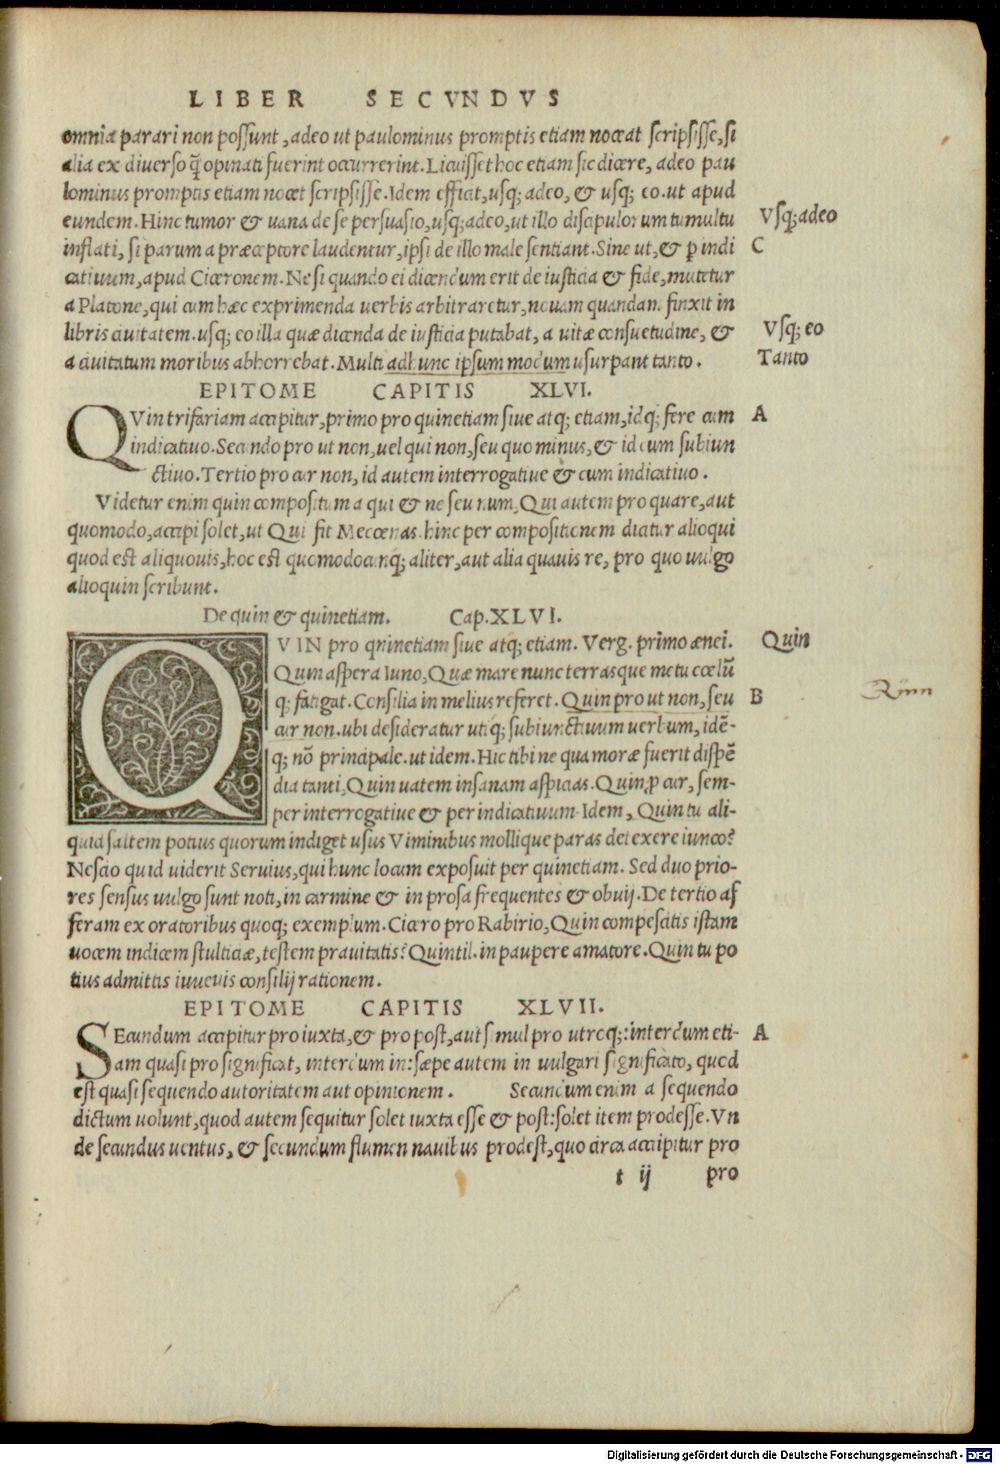 LIBER SECVNDVS
omnia parari non possunt, adeo ut paulominus promptis etiam noceat scripsisse, si
alia ex diuerso q̃ opinati fuerint occurrerint. Licuisset hoc etiam sic dicere, adeo pau
lominus promptis etiam nocet scripsisse. Idem efficit, usq; adeo, & usq; eo. ut apud
eundem. Hinc tumor & uana de se persuasio, usq; adeo, ut illo discipulorum tumultu
Vsq; adeo
inflati, si parum a præceptore laudentur, ipsi de illo male sentiant. Sine ut, & ꝑ indi
C
catiuum, apud Ciceronem. Ne si quando ei dicendum erit de iusticia & fide, mutetur
a Platone, qui cum hæc exprimenda uerbis arbitraretur, nouam quandam finxit in
libris ciuitatem. usq; eo illa quæ dicenda de iusticia putabat, a uitæ consuetudine, &
Vsq; eo
a ciuitatum moribus abhorrebat. Multi adhunc ipsum modum usurpant tanto.
Tanto
EPITOME CAPITIS XLVI.
QVin trifariam accipitur, primo pro quinetiam siue atq; etiam, idq; fere cum
A
indicatiuo. Secundo pro ut non, uel qui non, seu quo minus, & id cum subiun
ctiuo. Tertio pro cur non, id autem interrogatiue & cum indicatiuo.
Videtur enim quin compositum a qui & ne seu num. Qui autem pro quare, aut
quomodo, accipi solet, ut Qui fit Mecœnas. hinc per compositionem dicitur alioqui
quod est aliquouis, hoc est quomodocunq; aliter, aut alia quauis re, pro quo uulgo
alioquin scribunt.
De quin & quinetiam. Cap. XLVI.
QVIN pro qninetiam siue atq; etiam. Verg. primo ænei.
Quin
Quin aspera Iuno, Quæ mare nunc terrasque metu cœlū
q; fatigat. Consilia in melius referet. Quin pro ut non, seu
B
cur non. ubi desideratur utiq; subiunctiuum uerbum, idē-
q; nō principale. ut idem. Hic tibi ne qua moræ fuerit dispē
dia tanti, Quin uatem insanam aspicias. Quin ꝓ cur, sem-
per interrogatiue & per indicatiuum. Idem, Quin tu ali-
quid saltem potius quorum indiget usus Viminibus mollique paras detexere iunco?
Nescio quid uiderit Seruius, qui hunc locum exposuit per quinetiam. Sed duo prio-
res sensus uulgo sunt noti, in carmine & in prosa frequentes & obuij. De tertio af
feram ex oratoribus quoq; exemplum. Cicero pro Rabirio, Quin compescitis istam
uocem indicem stulticiæ, testem prauitatis? Quintil. in paupere amatore. Quin tu po
tius admittis iuuenis consilij rationem.
EPITOME CAPITIS XLVII.
SEcundum accipitur pro iuxta, & pro post, aut simul pro utroq;: interdum eti-
A
am quasi pro significat, interdum in: sæpe autem in uulgari significato, quod
est quasi sequendo autoritatem aut opinionem. Secundum enim a sequendo
dictum uolunt, quod autem sequitur solet iuxta esse & post: solet item prodesse. Vn
de secundus uentus, & secundum flumen nauibus prodest, quo circa accipitur pro
t ij pro
Digitalisierung gefördert durch die Deutsche Forschungsgemeinschaft - DFG